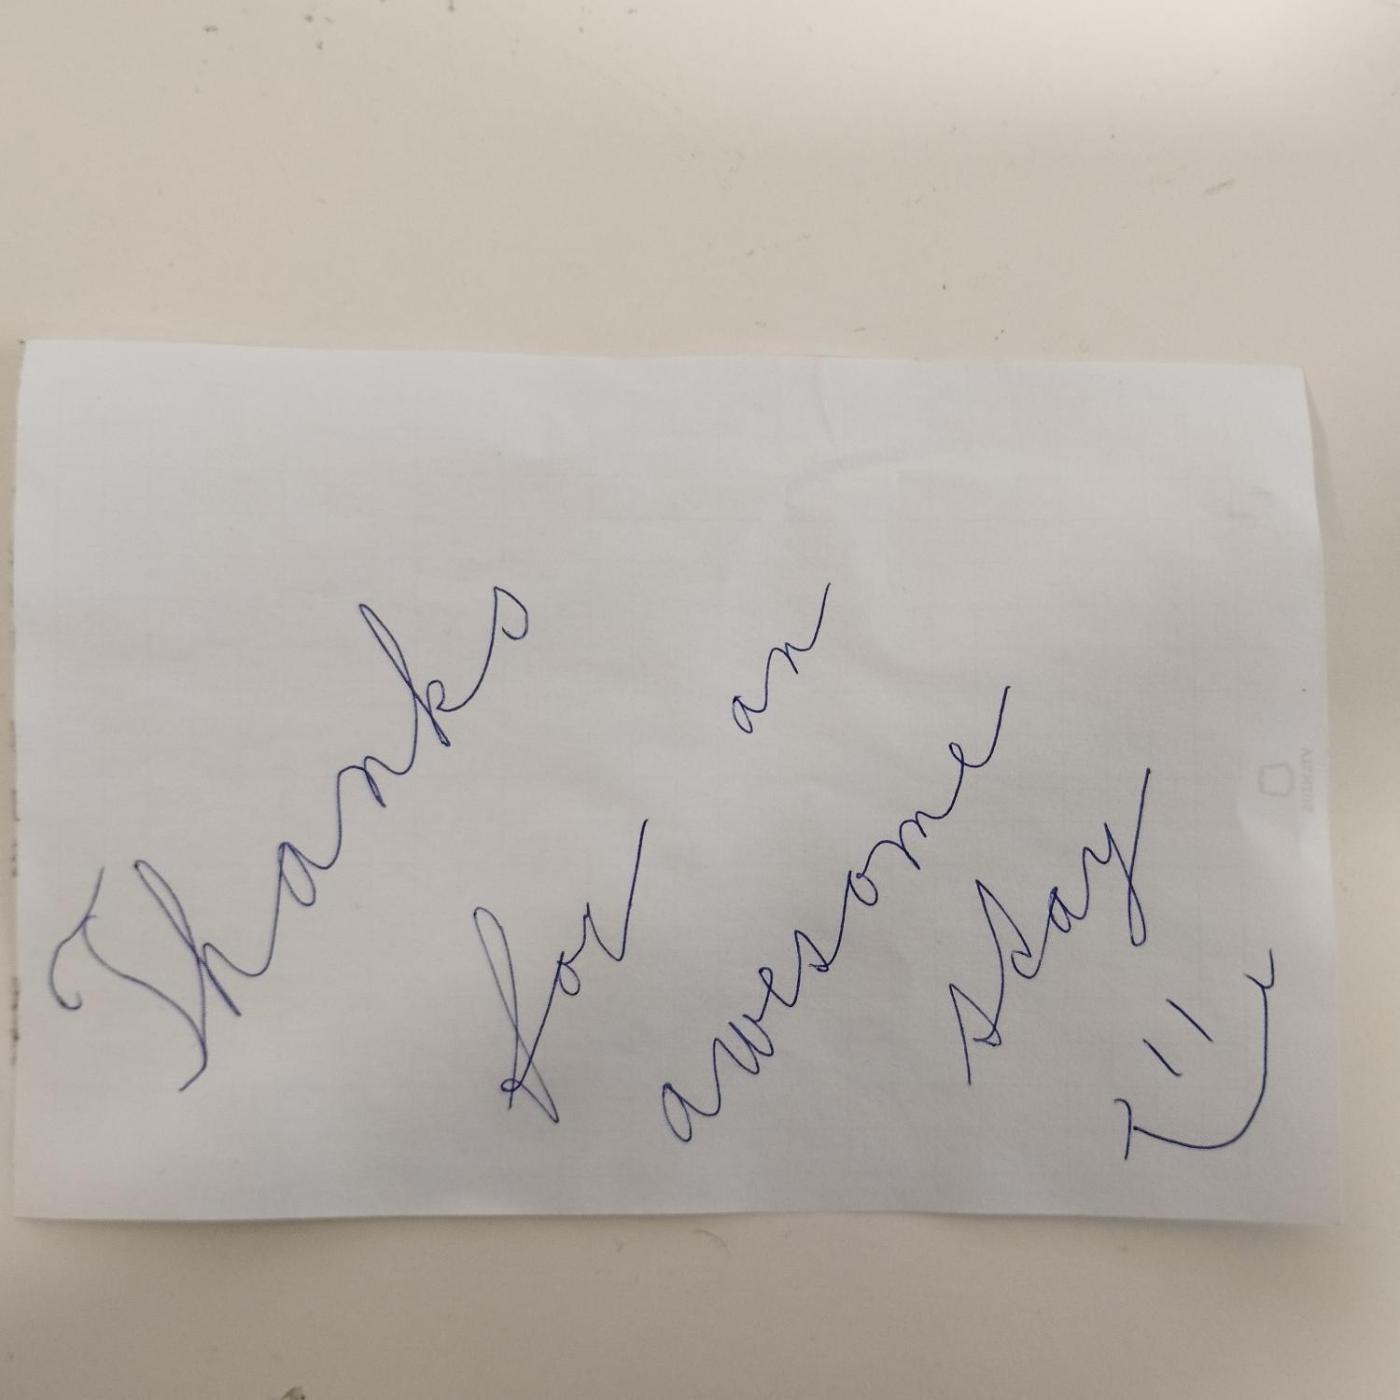 Thanks
for an
awesome
stay